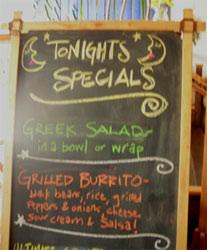 TONIGHTS
SPECIALS
GREEK SALAD-
in a bowl or wrap
GRILLED BURRITO-
beans, rice, grilled
Peppers & onions, cheese
sour cream & Salsa!